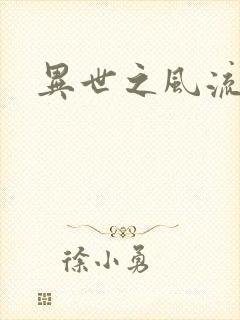 異世之風流
徐小勇